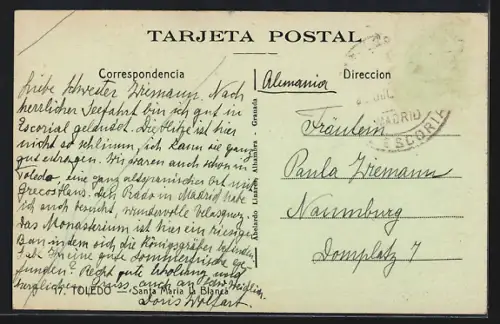 TARJETA POSTAL
Correspondencia
Direccion
(Alemania)
Liebe Schwester Ziemann. Nach
herrlicher Seefahrt bin ich gut in
Escorial gelandet. Die Hitze ist hier
nicht so schlimm, ich kann sie ganz
gut ertragen. Wir waren auch schon in
Toledo, eine ganz altspanischer Ort mit
Grecos Haus. Den Prado in Madrid habe
ich auch besucht, wundervolle Velasquez.
Das Monasterium ist hier ein riesiger
Bau in dem sich die Königsgräber befinden
eine gute Sommerfrische ge-
funden! Recht gute Erholung und
herzlichen Gruss, auch an
Doris Wolfart.
17. TOLEDO — Santa Maria la Blanca
Abelardo Linares, Alhambra - Granada
MADRID
ESCORIAL
Fräulein
Paula Ziemann
Naumburg
Domplatz 7